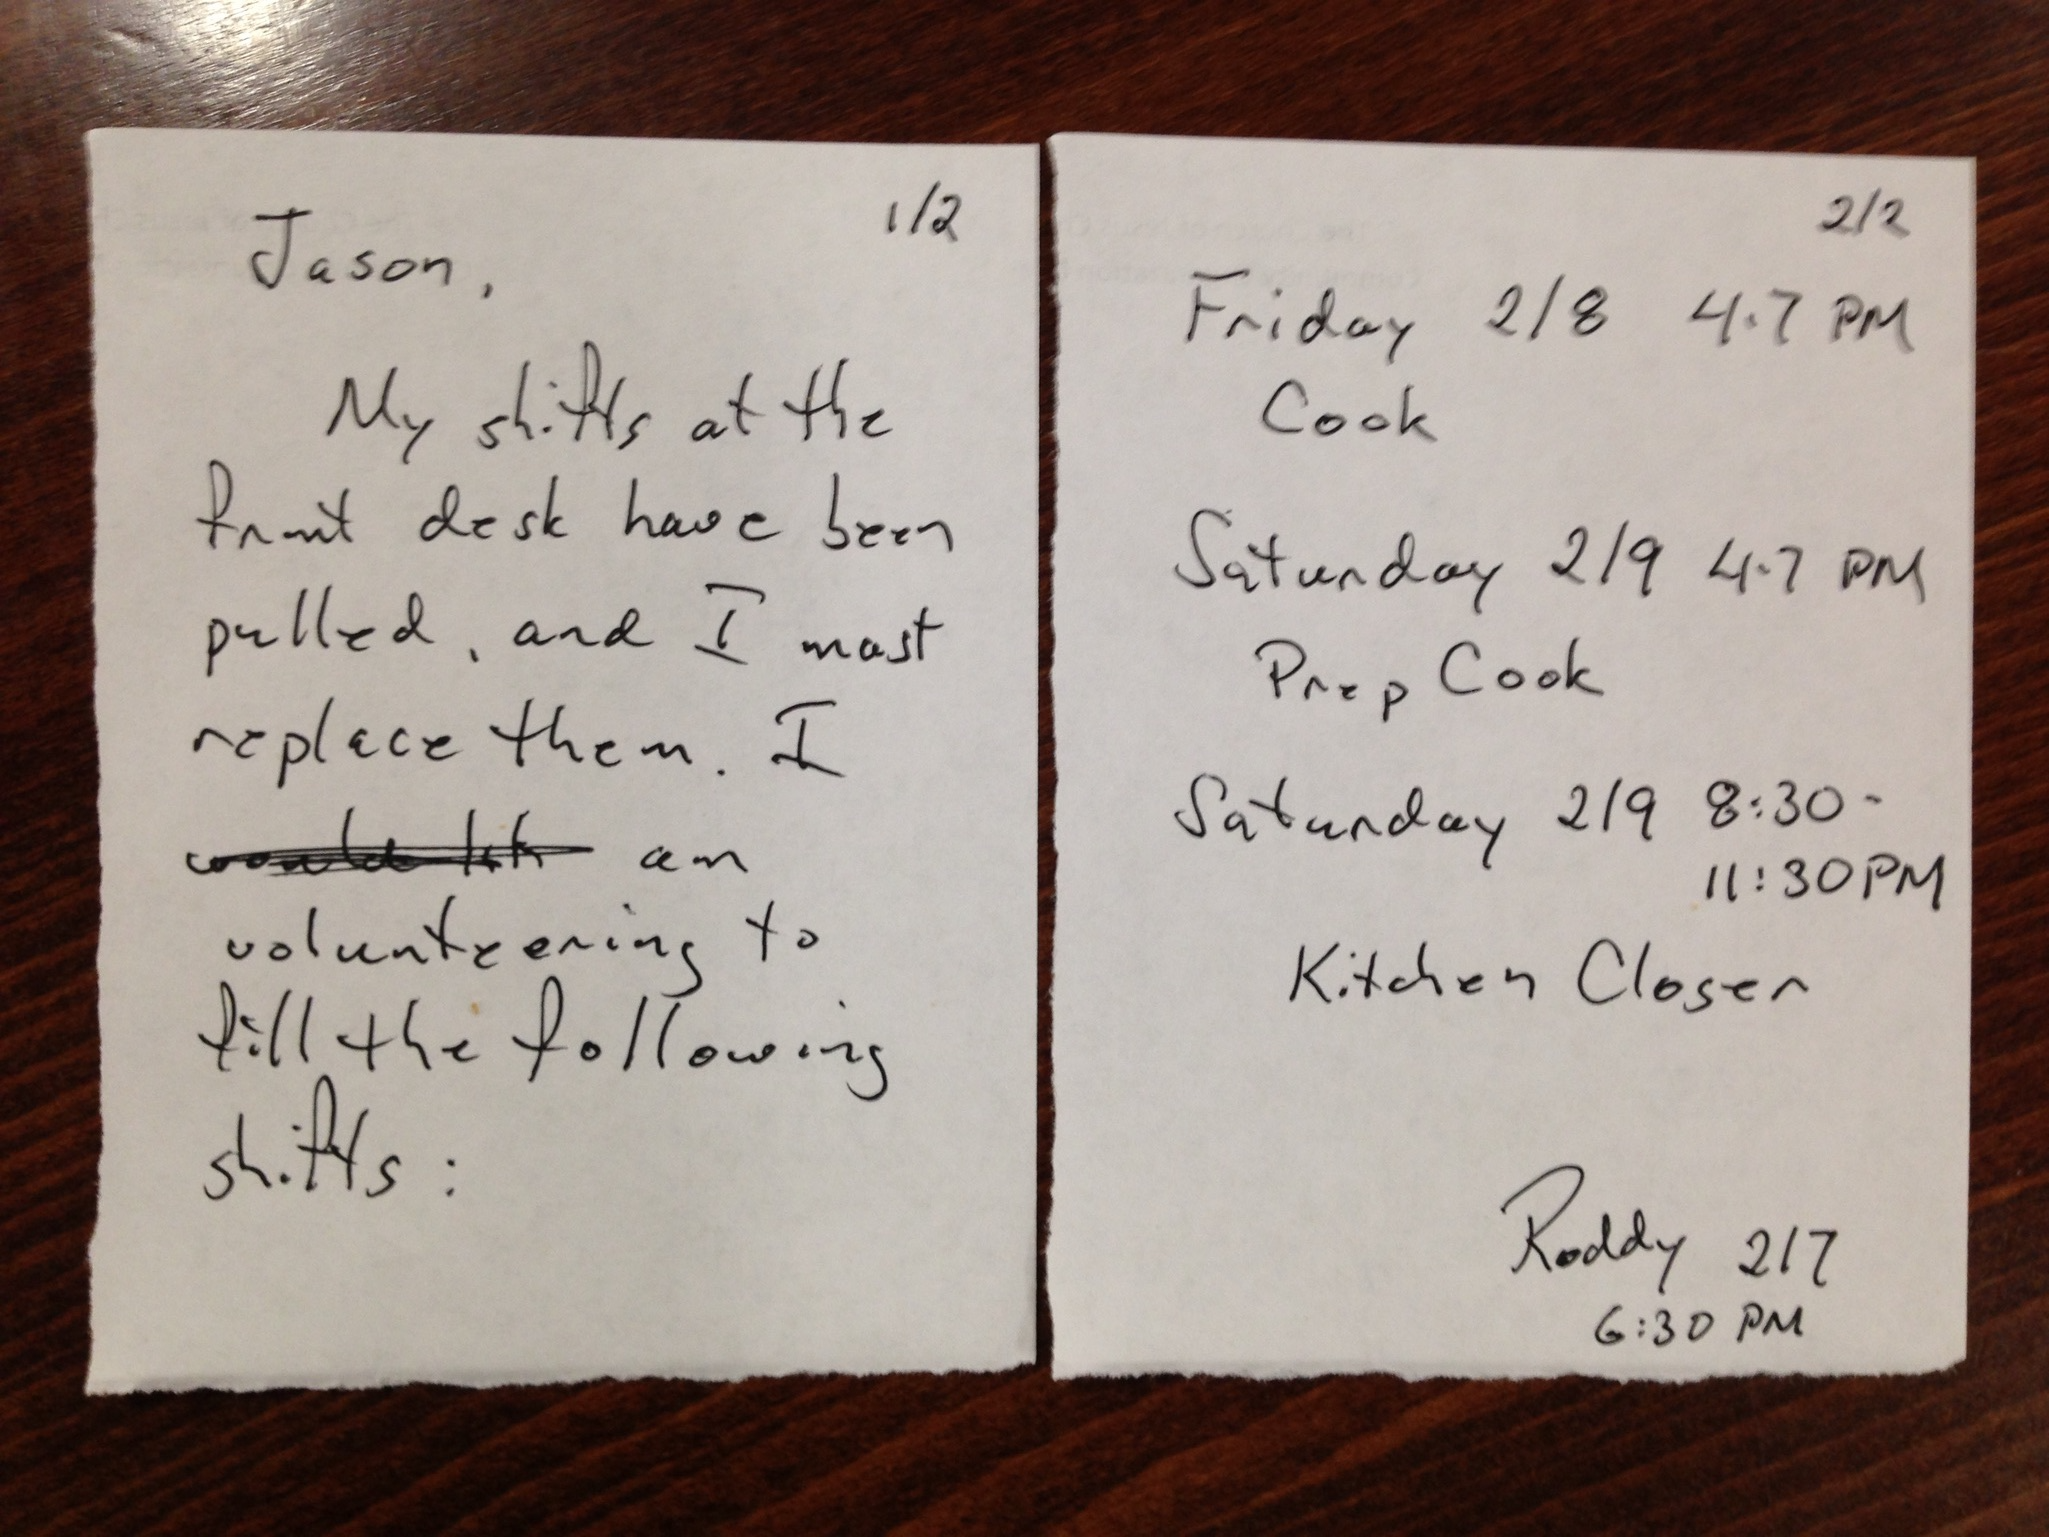 1/2
Jason,
My shifts at the
front desk have been
pulled, and I must
replace them. I
would lik am
volunteering to
fill the following
shifts:
2/2
Friday 2/8 4-7 PM
Cook
Saturday 2/9 4-7 PM
Prep Cook
Saturday 2/9 8:30-
11:30PM
Kitchen Closer
Roddy 2/7
6:30 PM